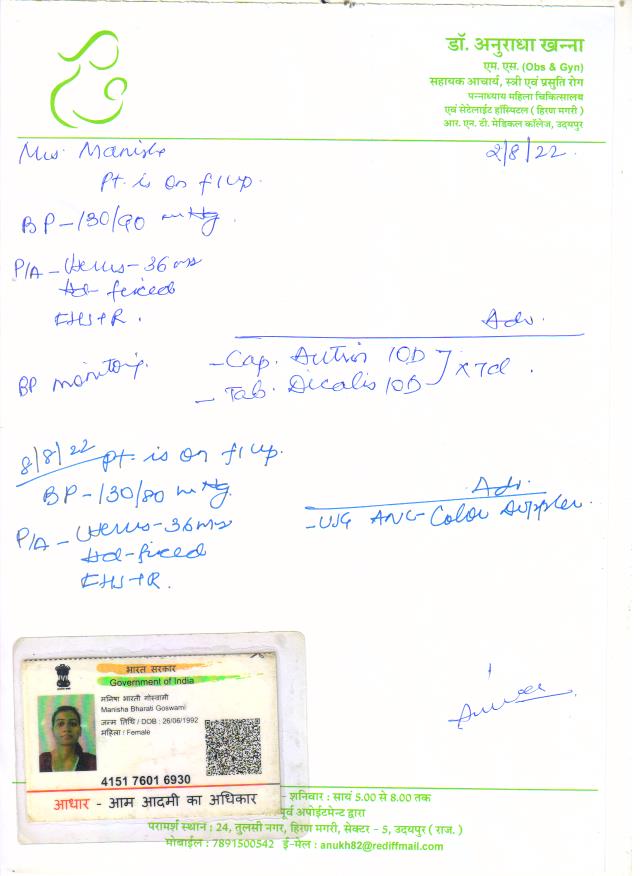 डॉ. अनुराधा खन्ना
एम. एस. (Obs & Gyn)
सहायक आचार्य, स्त्री एवं प्रसुति रोग
पन्नाध्याय महिला चिकित्सालय
एवं सेटेलाईट हॉस्पिटल ( हिरण मगरी )
आर. एन. टी. मेडिकल कॉलेज, उदयपुर
Mrs. Manisha 2/8/22.
Pt. is on f/up.
BP-130/90 mmHg.
P/A - Uterus-36
Hd- fixed
FHS+R.
Adv.
BP monitoring.
- Cap. 1OD
- Tab. Dicalis 1OD ] x7d.
8/8/22 Pt. is on f/up.
BP-130/80 mmHg.
P/A - Uterus-36
Hd-fixed
FHS+R.
Adv.
- USG ANC-Color Doppler.
भारत सरकार
Government of India
मनिषा भारती गोस्वामी
Manisha Bharati Goswami
जन्म तिथि / DOB : 26/06/1992
महिला / Female
4151 7601 6930
आधार - आम आदमी का अधिकार
- शनिवार : सायं 5.00 से 8.00 तक
पूर्व अपोईटमेन्ट द्वारा
परामर्श स्थान : 24, तुलसी नगर, हिरण मगरी, सेक्टर - 5, उदयपुर ( राज. )
मोबाईल : 7891500542 ई-मेल : anukh82@rediffmail.com